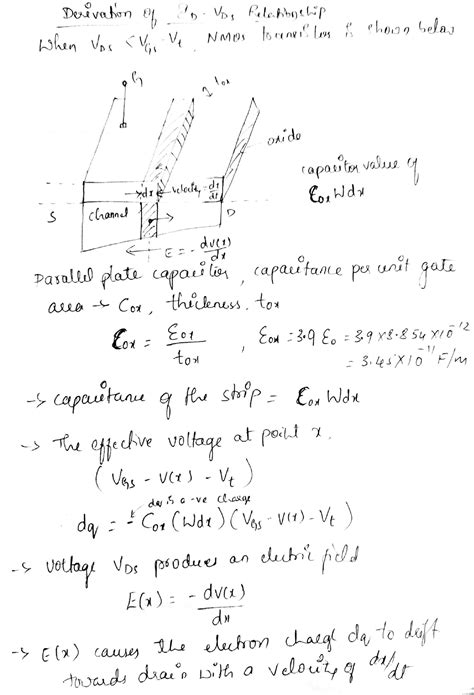 Derivation of ID-VDS Relationship
When VDS < VGS-Vt, NMOS is shown below
G
tox
oxide
dx velocity = dx/dt
capacitor value of
Cox Wdx
S channel D
E = -dv(x)/dx
Parallel plate capacitor, capacitance per unit gate
area → Cox, thickness. tox
Cox = εox/tox , εox = 3.9 ε0 = 3.9 x 8.854 x 10^-12
= 3.45 x 10^-11 F/m
→ capacitance of the strip = Cox Wdx
→ The effective voltage at point x.
(VGS - V(x) - Vt)
dq is a -ve charge
dq = - Cox (Wdx) (VGS - V(x) - Vt)
→ voltage VDS produces an electric field
E(x) = -dv(x)/dx
→ E(x) causes the electron charge dq to drift
towards drain with a velocity of dx/dt